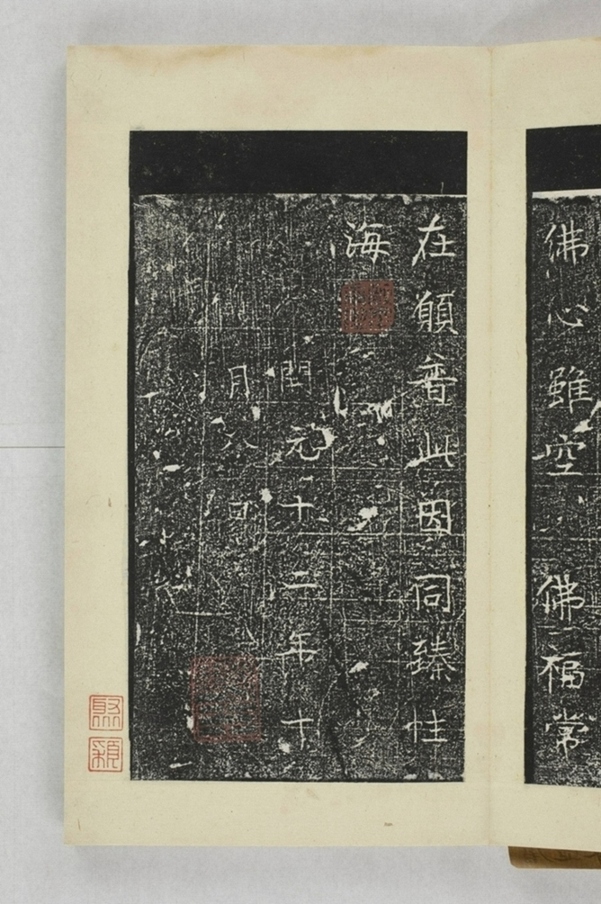 佛心雖空佛福常
在願普此因同臻性
海
開元十二年十
月八日